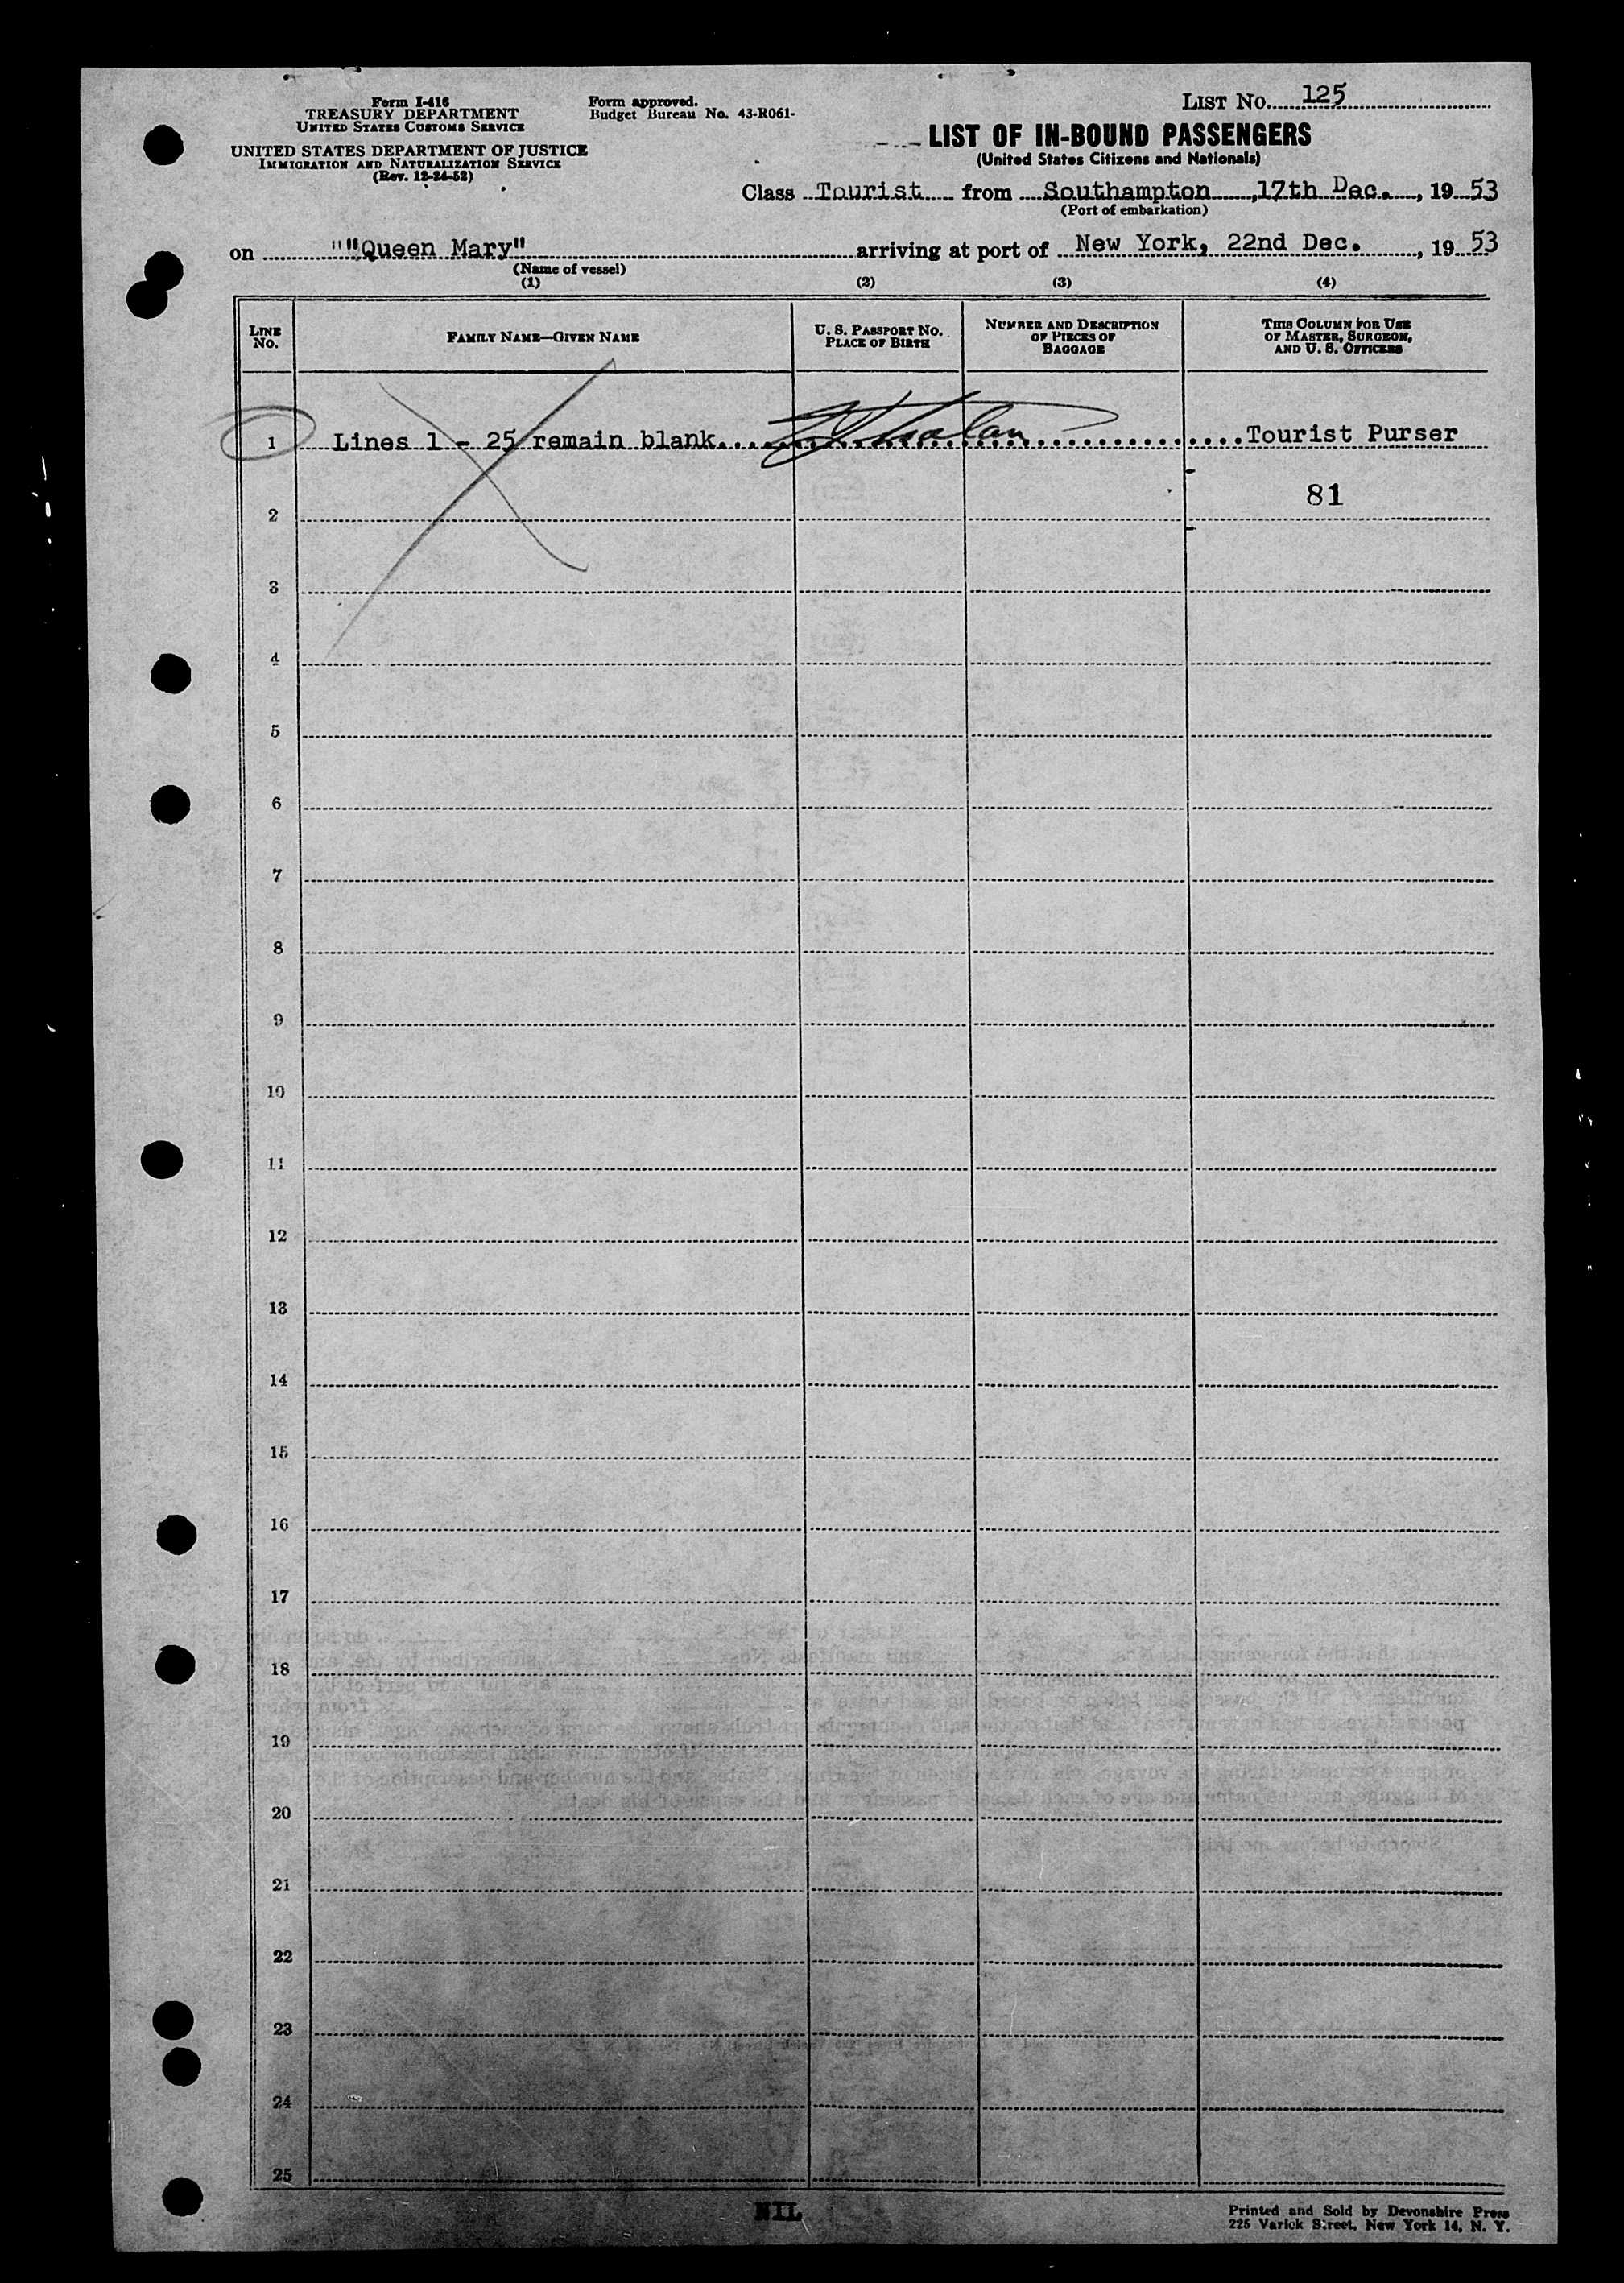 Form I-416
TREASURY DEPARTMENT
UNITED STATES CUSTOMS SERVICE
UNITED STATES DEPARTMENT OF JUSTICE
IMMIGRATION AND NATURALIZATION SERVICE
(Rev. 12-24-52)
Form approved.
Budget Bureau No. 43-R061-
LIST No. 125
LIST OF IN-BOUND PASSENGERS
(United States Citizens and Nationals)
Class Tourist from Southampton, 17th Dec., 1953
(Port of embarkation)
on ""Queen Mary" arriving at port of New York, 22nd Dec., 1953
(Name of vessel)
(1) (2) (3) (4)
LINE No. FAMILY NAME—GIVEN NAME U. S. PASSPORT No. PLACE OF BIRTH NUMBER AND DESCRIPTION OF PIECES OF BAGGAGE THIS COLUMN FOR USE OF MASTER, SURGEON, AND U. S. OFFICERS
1 Lines 1 - 25 remain blank. Tourist Purser
81
2
3
4
5
6
7
8
9
10
11
12
13
14
15
16
17
18
19
20
21
22
23
24
25
NIL
Printed and Sold by Devonshire Press
225 Varick Street, New York 14, N. Y.